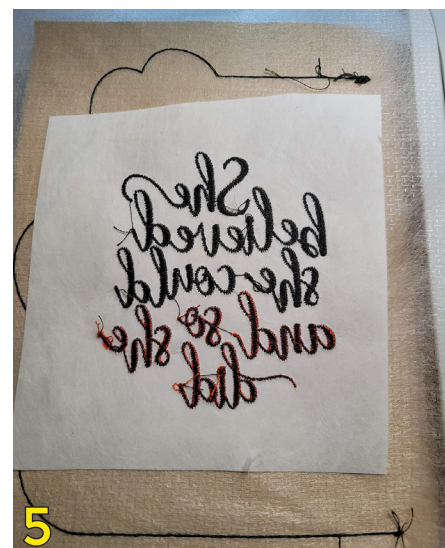 She
believed
she could
and so she
did
5